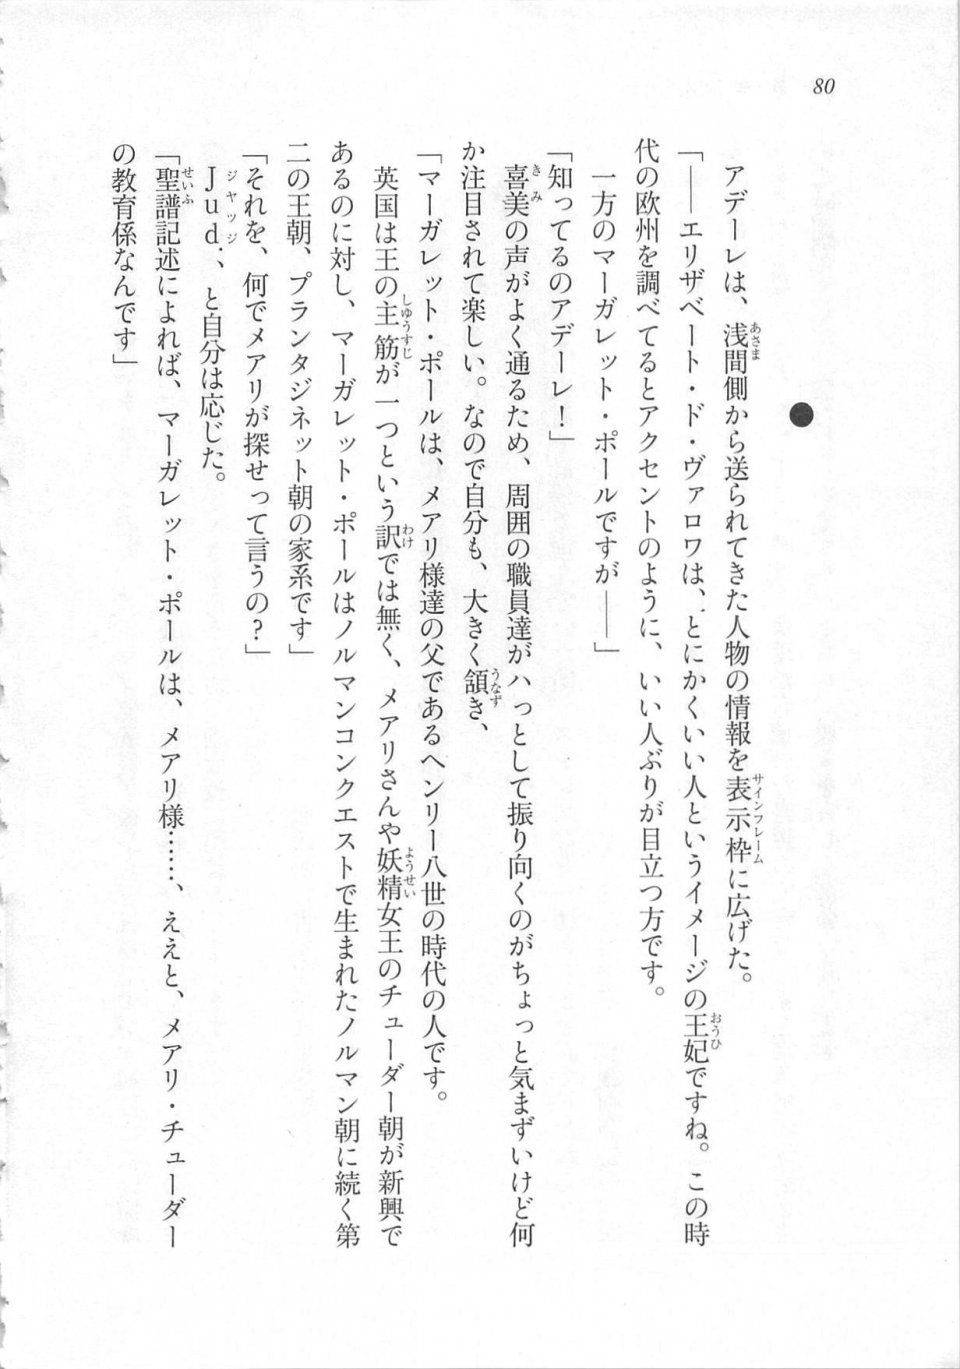 80
●
アデーレは、浅間側から送られてきた人物の情報を表示枠に広げた。
「――エリザベート・ド・ヴァロワは、とにかくいい人というイメージの王妃ですね。この時
代の欧州を調べてるとアクセントのように、いい人ぶりが目立つ方です。
一方のマーガレット・ポールですが――」
「知ってるのアデーレ！」
喜美の声がよく通るため、周囲の職員達がハっとして振り向くのがちょっと気まずいけど何
か注目されて楽しい。なので自分も、大きく頷き、
「マーガレット・ポールは、メアリ様達の父であるヘンリー八世の時代の人です。
英国は王の主筋が一つという訳では無く、メアリさんや妖精女王のチューダー朝が新興で
あるのに対し、マーガレット・ポールはノルマンコンクエストで生まれたノルマン朝に続く第
二の王朝、プランタジネット朝の家系です」
「それを、何でメアリが探せって言うの？」
Ｊｕｄ．、と自分は応じた。
「聖譜記述によれば、マーガレット・ポールは、メアリ様……、ええと、メアリ・チューダー
の教育係なんです」